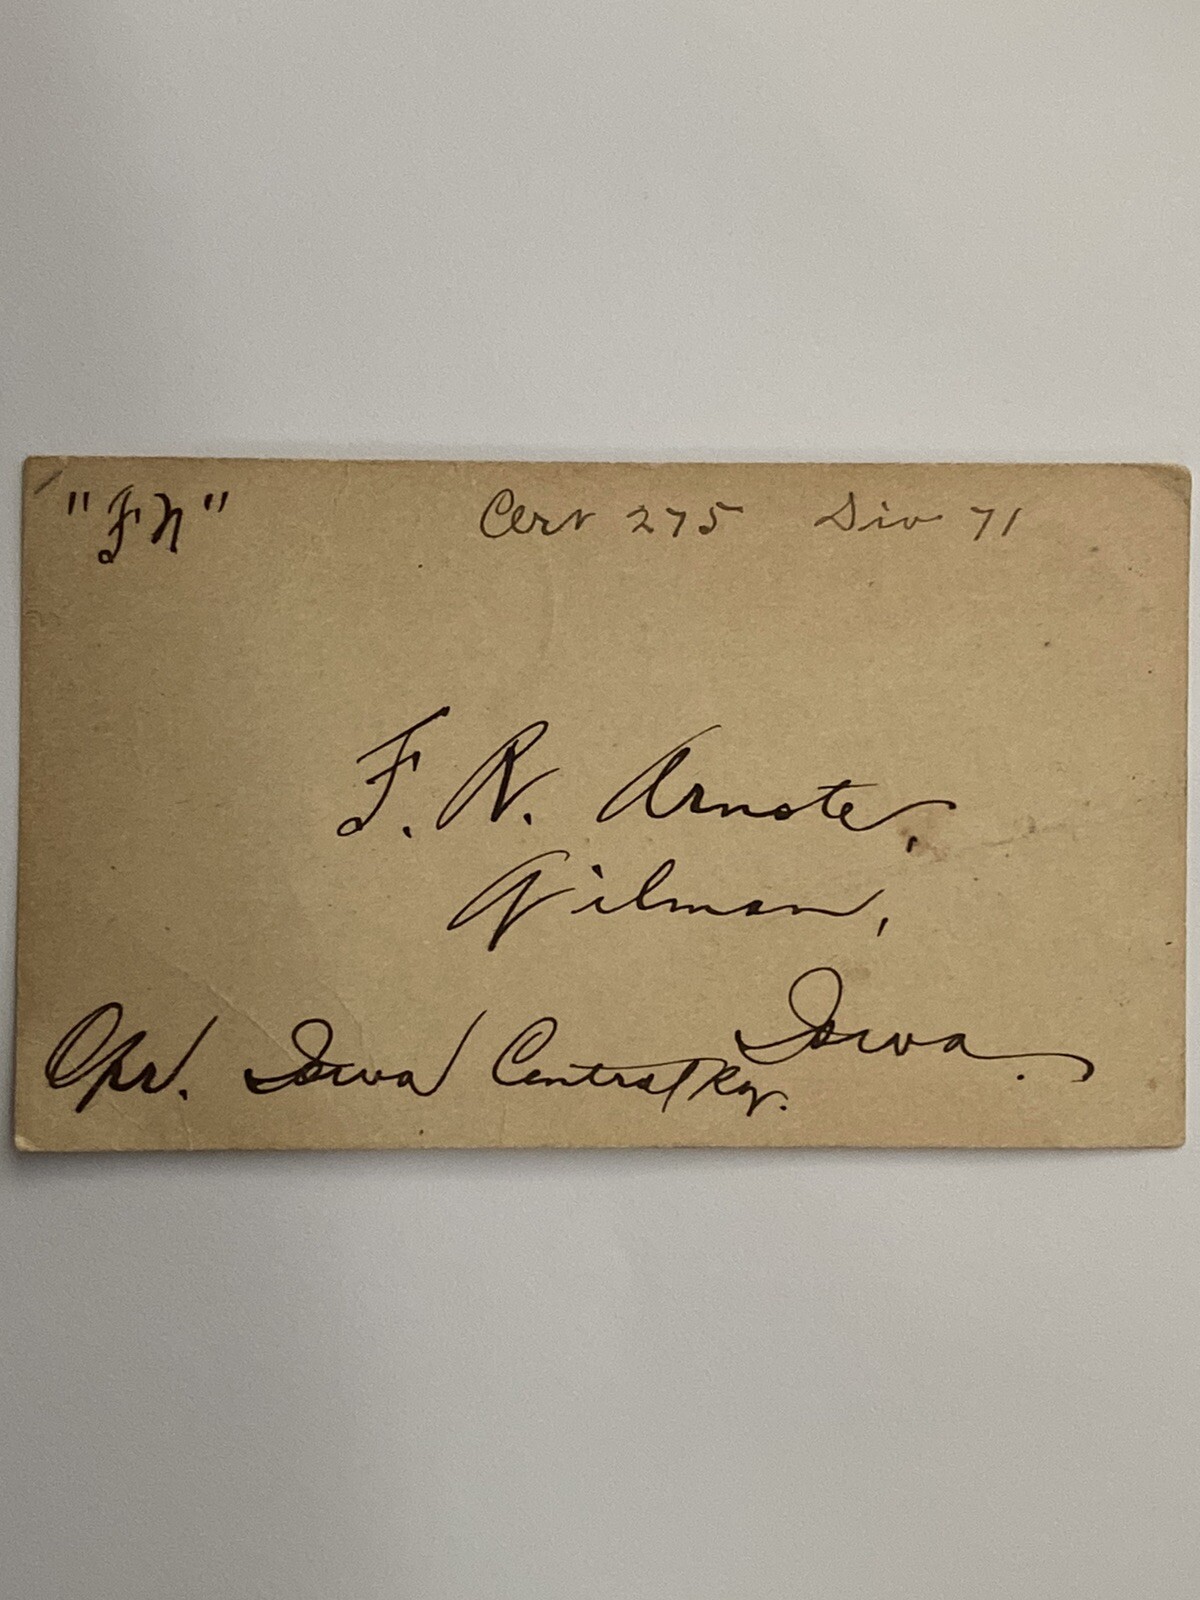 "FN" Cert 275 Div 71
F. R. Arnote,
Gilman,
Iowa.
Opr. Iowa Central Ry.